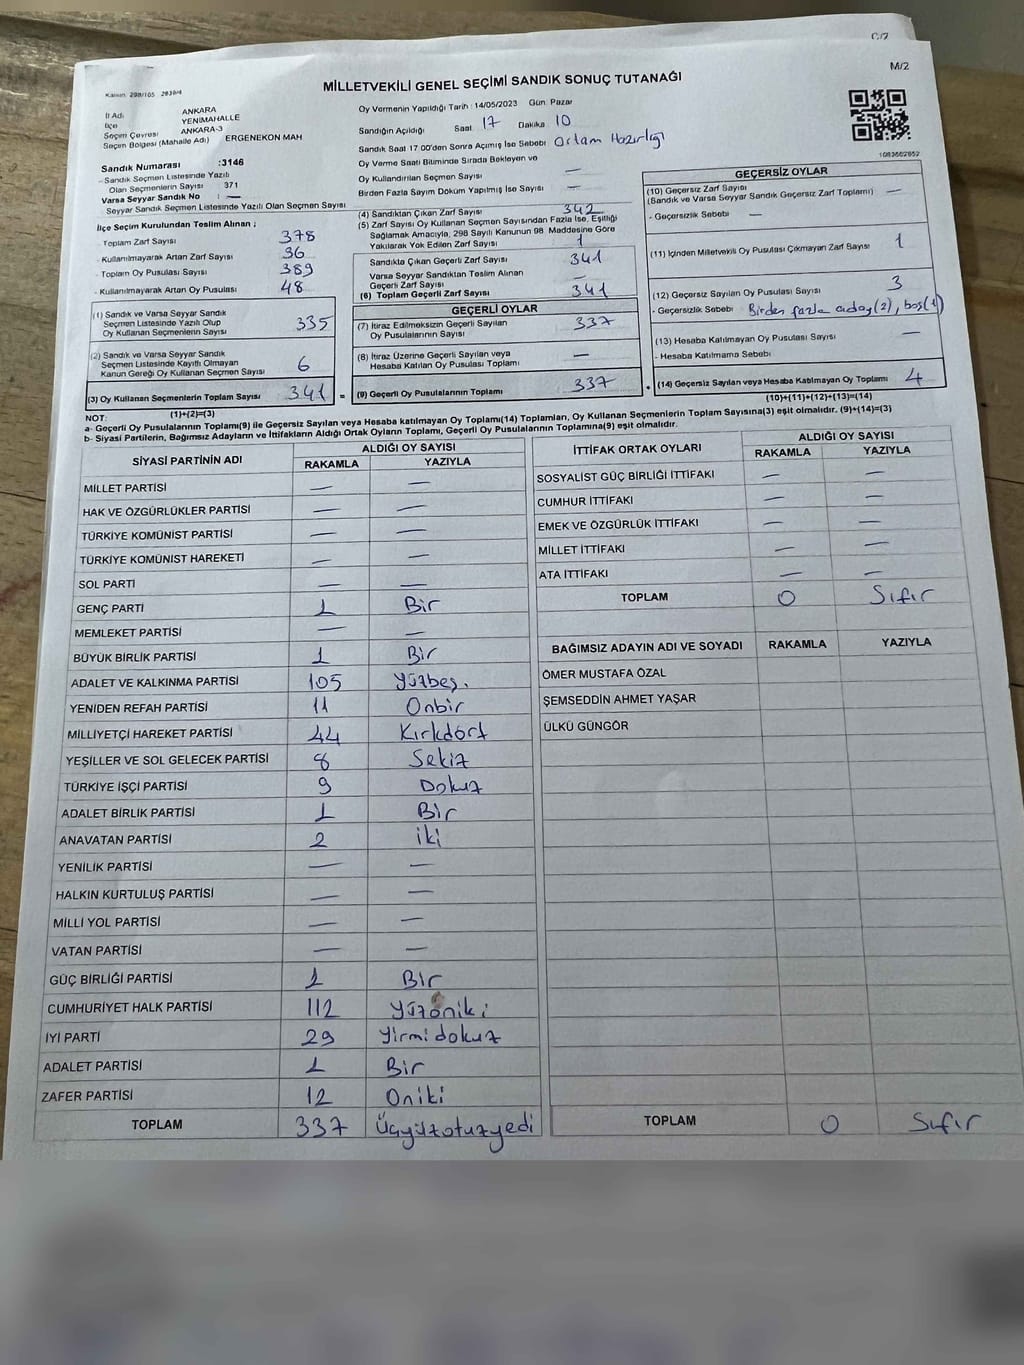 C/2
M/2
Kanun: 298/105 2839/4
MİLLETVEKİLİ GENEL SEÇİMİ SANDIK SONUÇ TUTANAĞI
İl Adı ANKARA
İlçe YENİMAHALLE
Seçim Çevresi ANKARA-3
Seçim Bölgesi (Mahalle Adı) ERGENEKON MAH
Sandık Numarası :3146
- Sandık Seçmen Listesinde Yazılı
Olan Seçmenlerin Sayısı : 371
Varsa Seyyar Sandık No : —
Seyyar Sandık Seçmen Listesinde Yazılı Olan Seçmen Sayısı
İlçe Seçim Kurulundan Teslim Alınan ;
- Toplam Zarf Sayısı : 378
- Kullanılmayarak Artan Zarf Sayısı : 36
- Toplam Oy Pusulası Sayısı : 389
- Kullanılmayarak Artan Oy Pusulası : 48
(1) Sandık ve Varsa Seyyar Sandık
Seçmen Listesinde Yazılı Olup
Oy Kullanan Seçmenlerin Sayısı 335
(2) Sandık ve Varsa Seyyar Sandık
Seçmen Listesinde Kayıtlı Olmayan
Kanun Gereği Oy Kullanan Seçmen Sayısı 6
(3) Oy Kullanan Seçmenlerin Toplam Sayısı 341 =
(1)+(2)=(3)
Oy Vermenin Yapıldığı Tarih : 14/05/2023 Gün: Pazar
Sandığın Açıldığı Saat 17 Dakika 10
Sandık Saat 17.00'den Sonra Açılmış İse Sebebi Ortam Hazırlığı
Oy Verme Saati Bitiminde Sırada Bekleyen ve
Oy Kullandırılan Seçmen Sayısı —
Birden Fazla Sayım Döküm Yapılmış İse Sayısı —
(4) Sandıktan Çıkan Zarf Sayısı 342
(5) Zarf Sayısı Oy Kullanan Seçmen Sayısından Fazla İse, Eşitliği
Sağlamak Amacıyla, 298 Sayılı Kanunun 98 Maddesine Göre
Yakılarak Yok Edilen Zarf Sayısı 1
Sandıkta Çıkan Geçerli Zarf Sayısı 341
Varsa Seyyar Sandıktan Teslim Alınan
Geçerli Zarf Sayısı —
(6) Toplam Geçerli Zarf Sayısı 341
GEÇERLİ OYLAR
(7) İtiraz Edilmeksizin Geçerli Sayılan
Oy Pusulalarının Sayısı 337
(8) İtiraz Üzerine Geçerli Sayılan veya
Hesaba Katılan Oy Pusulası Toplamı —
(9) Geçerli Oy Pusulalarının Toplamı 337 +
1083602852
GEÇERSİZ OYLAR
(10) Geçersiz Zarf Sayısı
(Sandık ve Varsa Seyyar Sandık Geçersiz Zarf Toplamı) —
- Geçersizlik Sebebi —
(11) İçinden Milletvekili Oy Pusulası Çıkmayan Zarf Sayısı 1
(12) Geçersiz Sayılan Oy Pusulası Sayısı 3
- Geçersizlik Sebebi Birden fazla aday(2), boş(1)
(13) Hesaba Katılmayan Oy Pusulası Sayısı —
- Hesaba Katılmama Sebebi
(14) Geçersiz Sayılan veya Hesaba Katılmayan Oy Toplamı 4
(10)+(11)+(12)+(13)=(14)
NOT:
a- Geçerli Oy Pusulalarının Toplamı(9) ile Geçersiz Sayılan veya Hesaba katılmayan Oy Toplamı(14) Toplamları, Oy Kullanan Seçmenlerin Toplam Sayısına(3) eşit olmalıdır. (9)+(14)=(3)
b- Siyasi Partilerin, Bağımsız Adayların ve İttifakların Aldığı Ortak Oyların Toplamı, Geçerli Oy Pusulalarının Toplamına(9) eşit olmalıdır.
SİYASİ PARTİNİN ADI ALDIĞI OY SAYISI
RAKAMLA YAZIYLA
MİLLET PARTİSİ — —
HAK VE ÖZGÜRLÜKLER PARTİSİ — —
TÜRKİYE KOMÜNİST PARTİSİ — —
TÜRKİYE KOMÜNİST HAREKETİ — —
SOL PARTİ — —
GENÇ PARTİ 1 Bir
MEMLEKET PARTİSİ — —
BÜYÜK BİRLİK PARTİSİ 1 Bir
ADALET VE KALKINMA PARTİSİ 105 Yüzbeş.
YENİDEN REFAH PARTİSİ 11 Onbir
MİLLİYETÇİ HAREKET PARTİSİ 44 Kırkdört
YEŞİLLER VE SOL GELECEK PARTİSİ 8 Sekiz
TÜRKİYE İŞÇİ PARTİSİ 9 Dokuz
ADALET BİRLİK PARTİSİ 1 Bir
ANAVATAN PARTİSİ 2 iki
YENİLİK PARTİSİ — —
HALKIN KURTULUŞ PARTİSİ — —
MİLLİ YOL PARTİSİ — —
VATAN PARTİSİ — —
GÜÇ BİRLİĞİ PARTİSİ 1 Bir
CUMHURİYET HALK PARTİSİ 112 Yüzoniki
İYİ PARTİ 29 Yirmidokuz
ADALET PARTİSİ 1 Bir
ZAFER PARTİSİ 12 Oniki
TOPLAM 337 Üçyüzotuzyedi
İTTİFAK ORTAK OYLARI ALDIĞI OY SAYISI
RAKAMLA YAZIYLA
SOSYALİST GÜÇ BİRLİĞİ İTTİFAKI — —
CUMHUR İTTİFAKI — —
EMEK VE ÖZGÜRLÜK İTTİFAKI — —
MİLLET İTTİFAKI — —
ATA İTTİFAKI — —
TOPLAM 0 Sıfır
BAĞIMSIZ ADAYIN ADI VE SOYADI RAKAMLA YAZIYLA
ÖMER MUSTAFA ÖZAL
ŞEMSEDDİN AHMET YAŞAR
ÜLKÜ GÜNGÖR
TOPLAM 0 Sıfır